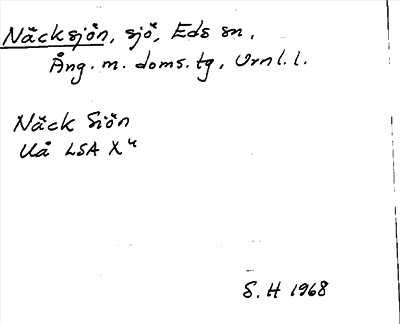 Näcksjön, sjö, Eds sn.
Ång. m. doms. tg, Vrnl. l.
Näck Siön
Uå LSA X4
S. H 1968